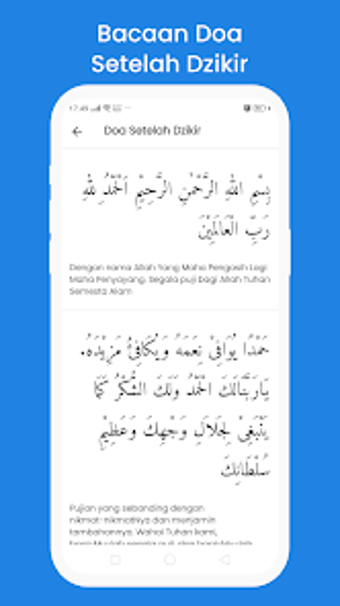 Bacaan Doa
Setelah Dzikir
17.49
Doa Setelah Dzikir
بِسْمِ اللهِ الرَّحْمٰنِ الرَّحِيْمِ اَلْحَمْدُ لِلّٰهِ
رَبِّ الْعَالَمِيْنَ
Dengan nama Allah Yang Maha Pengasih Lagi
Maha Penyayang. Segala puji bagi Allah Tuhan
Semesta Alam
حَمْدًا يُوَافِيْ نِعَمَهُ وَيُكَافِئُ مَزِيْدَهُ.
يَارَبَّنَالَكَ الْحَمْدُ وَلَكَ الشُّكْرُ كَمَا
يَنْبَغِيْ لِجَلَالِ وَجْهِكَ وَعَظِيْمِ
سُلْطَانِكَ
Pujian yang sebanding dengan
nikmat-nikmatNya dan menjamin
tambahannya. Wahai Tuhan kami,